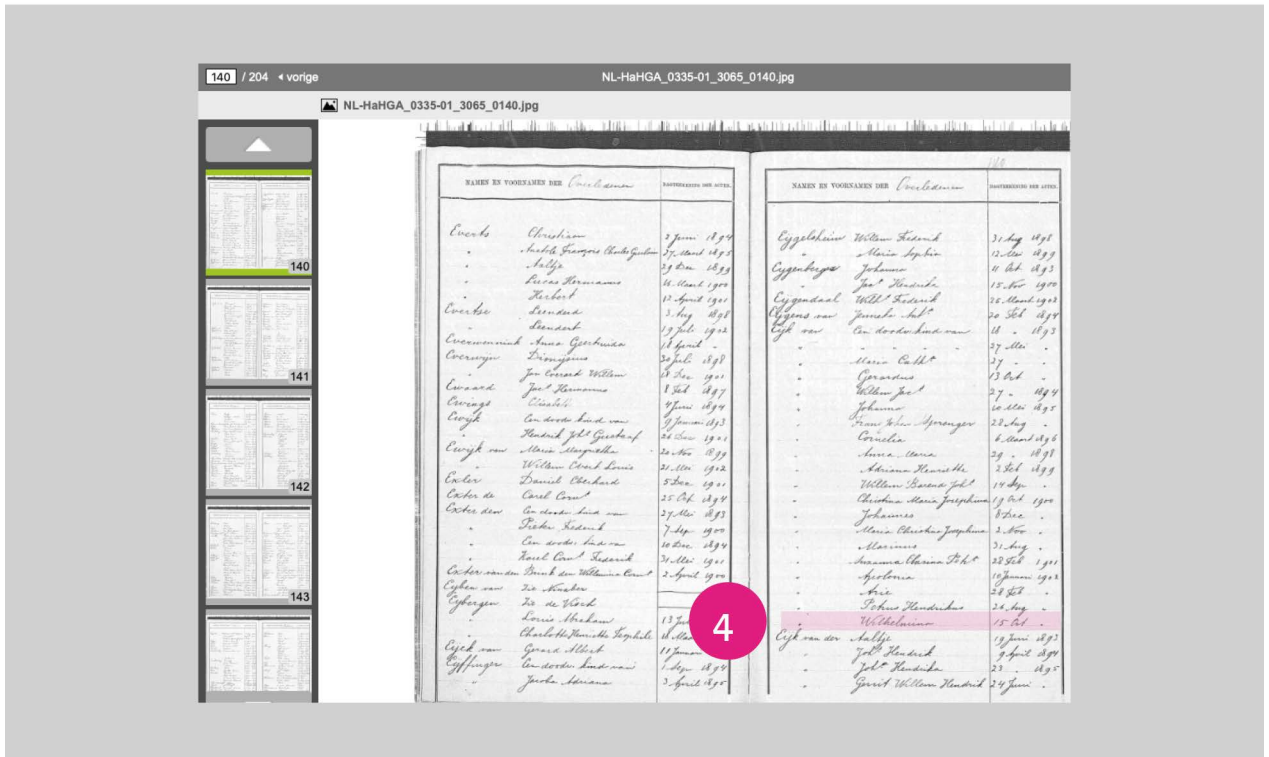 140 / 204 vorige
NL-HaHGA_0335-01_3065_0140.jpg
NL-HaHGA_0335-01_3065_0140.jpg
140
141
142
143
NAMEN EN VOORNAMEN DER Overledenen DAGTEEKENING DER ACTEN.
Everts Christiaan 2 Juni 1894
" Anatole François Charles 27 Maart 1895
" Aaltje 29 Dec 1899
" Lucas Hermanus 16 Maart 1900
" Herbert 12 April 1901
Evertse Leendert 3 Aug 1898
" Leendert 19 Juli 1902
Everwennink Anna Geertruida 18 April "
Everwijn Dionysius 30 Juli 1898
" Jan Everard Willem 18 Dec 1901
Ewaard Jacs Hermanus 8 Feb 1897
Ewings Elisabeth 4 Juni 1894
Ewijk Een dood kind van 9 Januari 1893
" Hendrik Johs Gustaaf 26 Dec 1901
Ewijk van Maria Margretha 20 Nov 1899
" Willem Evert Louis 21 Mei 1902
Exler Daniel Eberhard 5 Dec 1901
Exter de Carel Corns 25 Oct 1894
Exter den Een dood kind van 27 Mei 1893
" Pieter Frederik 7 Sep 1900
" Een dood kind van 10 Dec 1894
" Karel Corns Frederik 31 Mei 1901
Exter van den Brink den Willemina Corna 2 April 1900
Eyben van Zie Ninaber
Eybergen Zie de Visch
" Louis Abraham 13
" Charlotte Henriette Theophile 18
Eijck van Gerard Albert 11 Januari
Eijffinger Een dood kind van 1 Sep 1894
" Jacoba Adriana 3 April 1895
4
140
NAMEN EN VOORNAMEN DER Overledenen DAGTEEKENING DER ACTEN.
Eijgelsheim Willem Frederik 31 Aug 1898
" Maria Sophia 12 Mei 1899
Eygenberge Johanna 11 Oct 1893
" Jaca Hendrika 15 Nov 1900
Eygendaal Willm Frederik 25 Maart 1902
Eijgens van Janneke Anta 20 Feb 1894
Eijk van Een dood kind van 18 " 1893
" " " " " 27 Mei "
" Maria Catha 27 " "
" Gerardus 13 Oct "
" Willem Jacs 27 " 1894
" Johanna 10 Mei 1895
" Frans 28 Aug "
" Cornelia 6 Maart 1896
" Anna Maria 29 " 1898
" Adriana Henriette 2 Feb 1899
" Willem Barend Johs 14 Sep "
" Christina Maria Josephina 19 Oct 1900
" Johannes 8 Dec "
" Maria Christina Josephina 2 Nov "
" Marinus 31 Aug "
" Susanna Clasina 28 Feb 1901
" Apolonia 10 Januari 1902
" Arie 28 Feb "
" Petrus Hendrikus 26 Aug "
" Wilhelmina 15 Oct "
Eijk van der Aaltje 19 Juni 1893
" Johs Hendrik 9 April 1894
" Joha Hendrika 23 " 1895
" Gerrit Willem Hendrik 24 Juni "